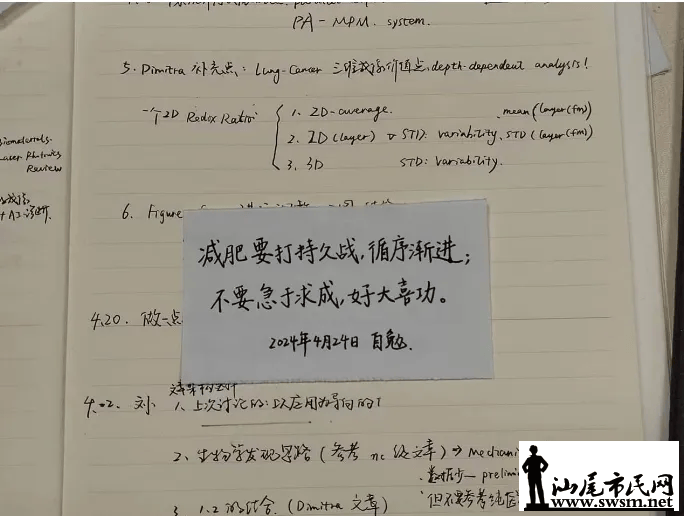 PA-MPM. system.
5. Dimitra 补充点: Lung-Cancer 三维成像价值点, depth-dependent analysis!
一个2D Redox Ratio:
1. 2D-average. mean(layer(fm))
2. 2D(layer) STD: variability. STD(layer(fm))
3. 3D STD: variability.
Biomaterials.
Laser Photonics
Review
6. Figure
减肥要打持久战,循序渐进;
不要急于求成,好大喜功。
2024年4月24日 自勉.
4.20. 做一点
刘 1、上次讨论的:以应用为导向的
2、生物学发现思路(参考 nc 文章)→ Mechani
数据少— prelimi
但不要参考纯医
3 1.2 的结合. (Dimitra 文章)
汕尾市民网
www.swsm.net